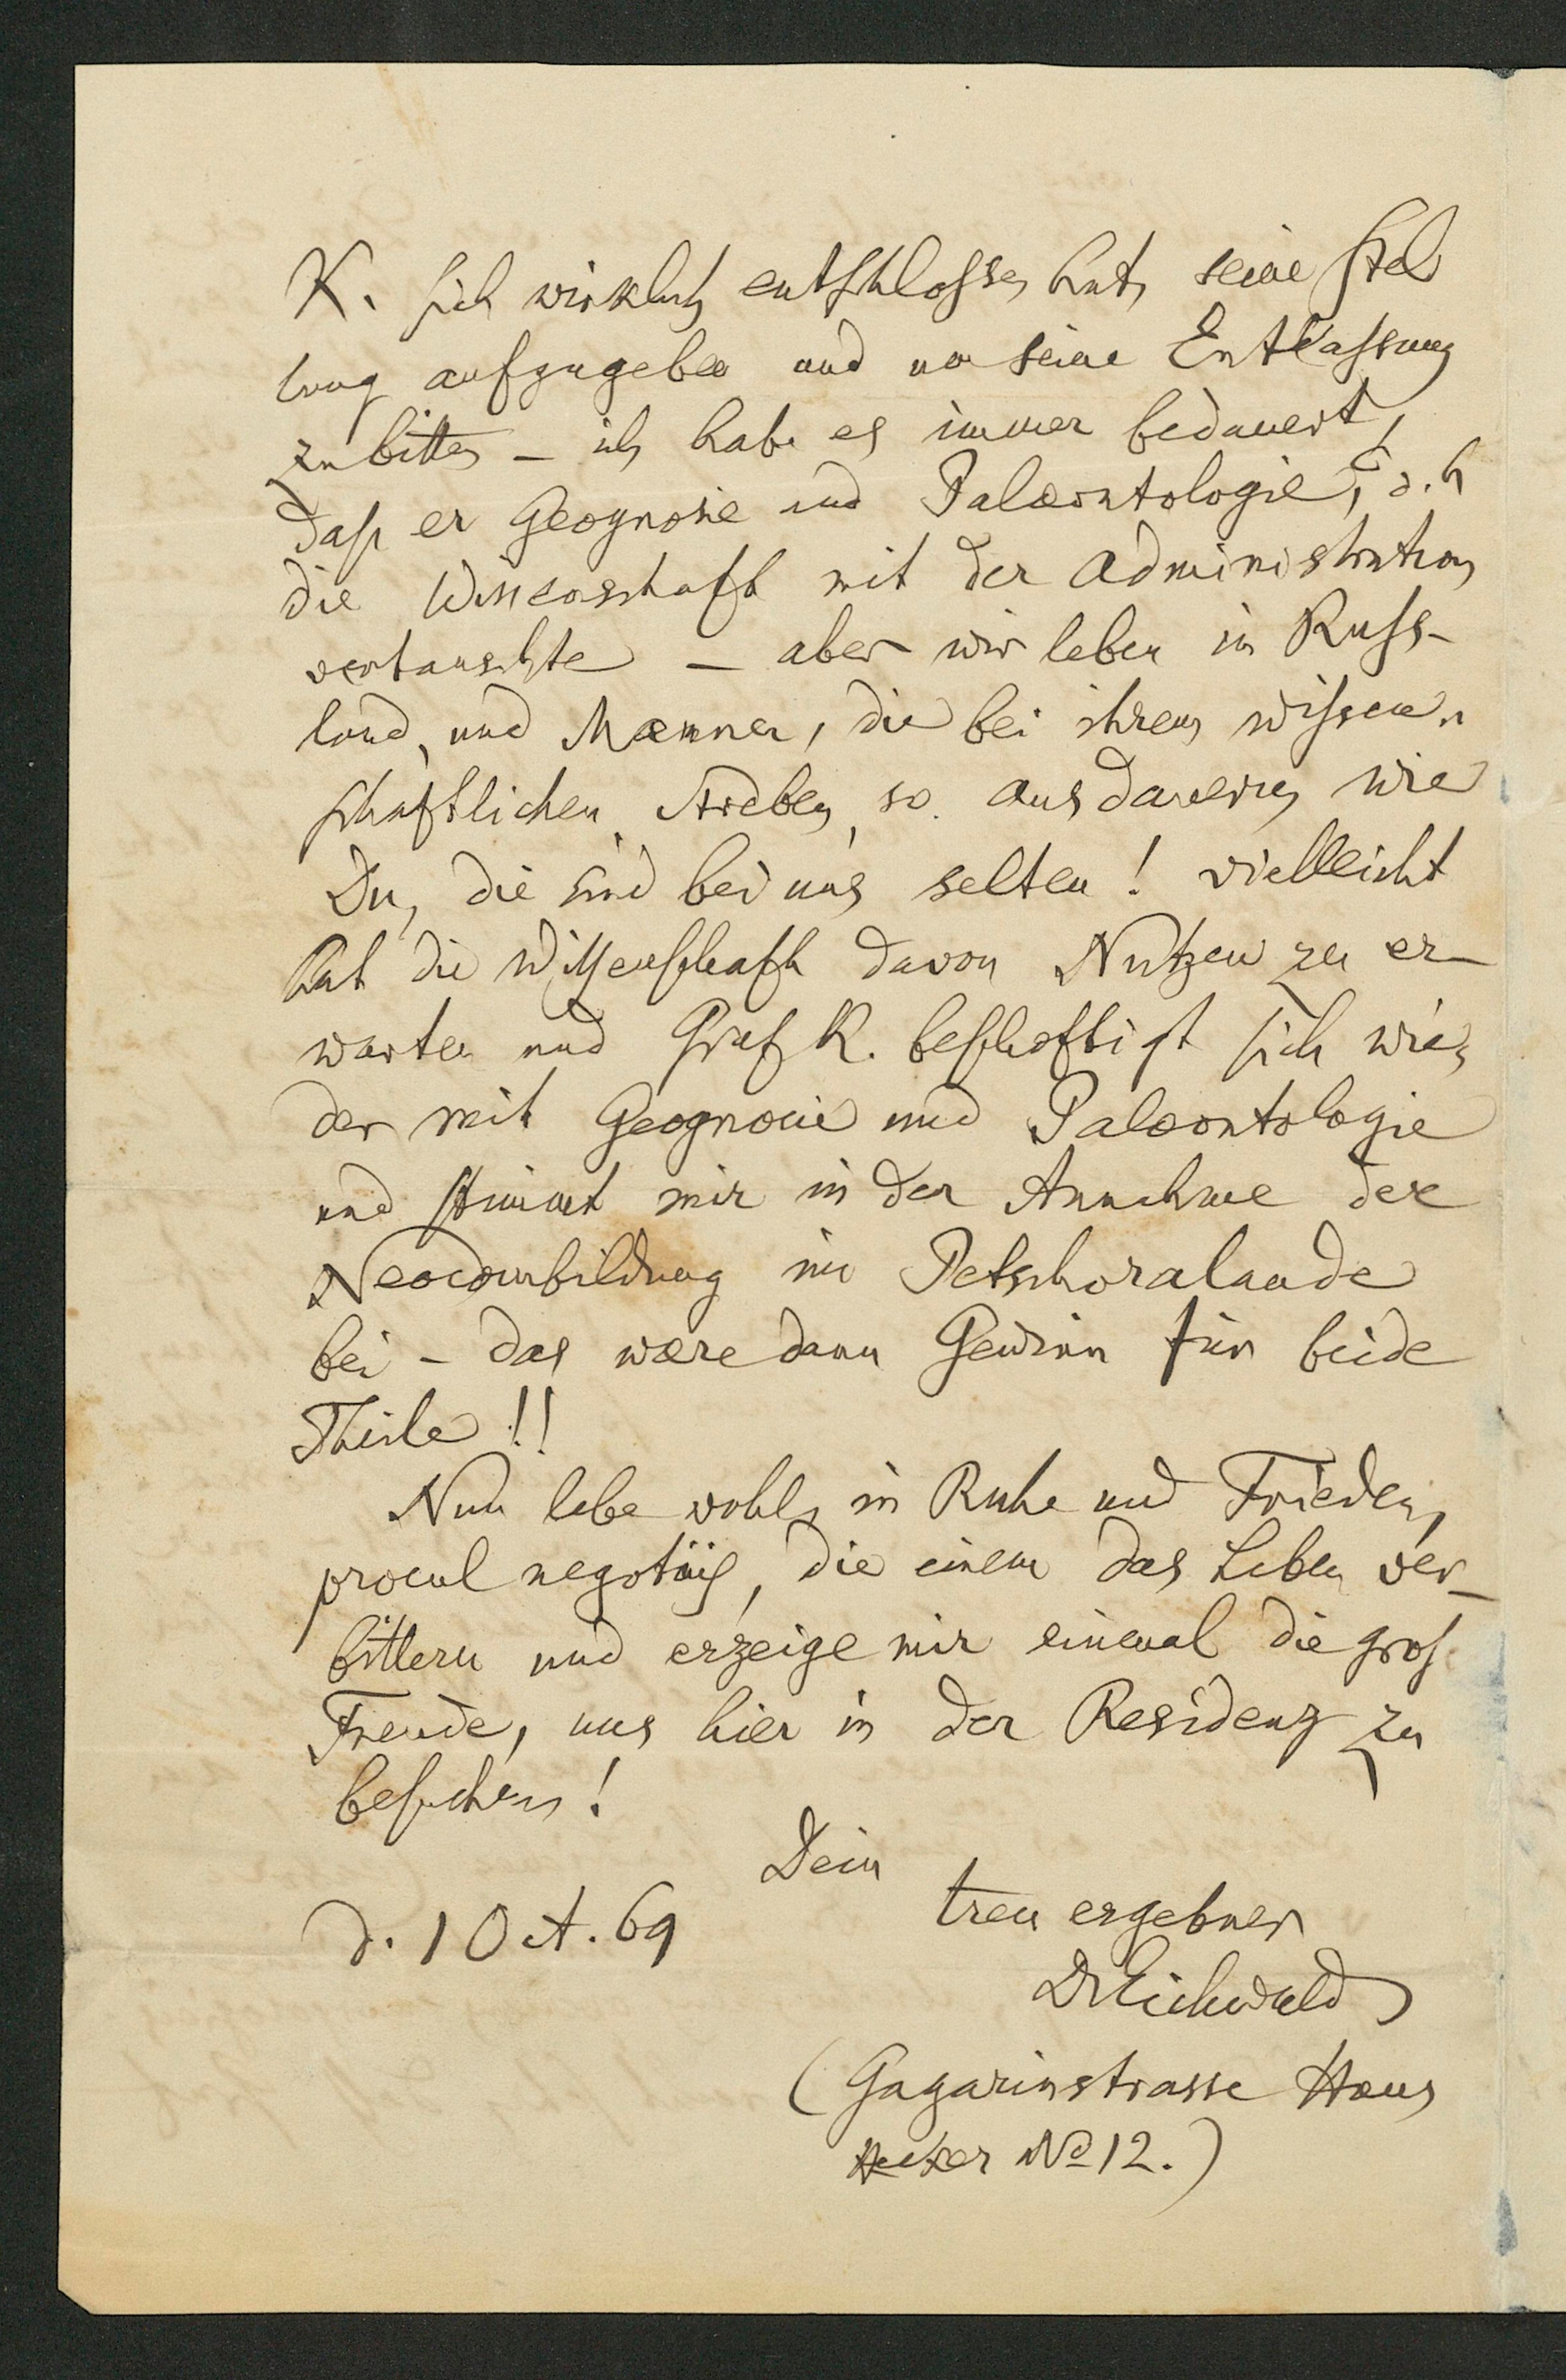 K. sich wirklich entschlossen hat, seine Stel
lung aufzugeben und um seine Entlassung
zu bitten – ich habe es immer bedauert,
daß er Geognosie und Palæontologie, d. h
die Wissenschaft mit der Administration
vertauschte – aber wir leben in Russ-
land, und Mænner, die bei ihrem wissen-
schaftlichen Streben, so ausdauern, wie
Du, die sind bei uns selten! vielleicht
hat die Wissenschaft davon Nutzen zu er-
warten und Graf K. beschæftigt sich wie-
der mit Geognosie und Palæontologie
und stimmt mir in der Annahme der
Neocombildung im Petschoralande
bei – das wære dann Gewinn für beide
Theile!!
Nun lebe wohl, in Ruhe und Frieden,
procul negotiis, die einem das Leben ver-
bittern und erzeige mir einmal die gross
Freude, uns hier in der Residenz zu
besuchen!
Dein
treu ergebner
d. 1 Oct. 69
DrEichwald
(Gagarinstrasse Haus
No 12.)